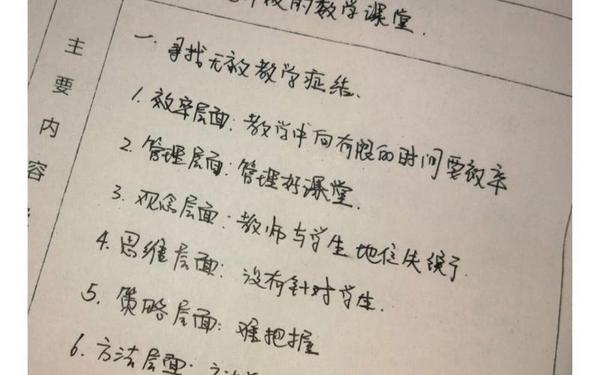 的教学课堂.
主要内容
一、寻找无效教学症结.
1. 效率层面: 教学中向有限的时间要效率
2. 管理层面: 管理好课堂.
3. 观念层面: 教师与学生地位失衡了.
4. 思维层面: 没有针对学生.
5. 策略层面: 难把握
6. 方法层面: